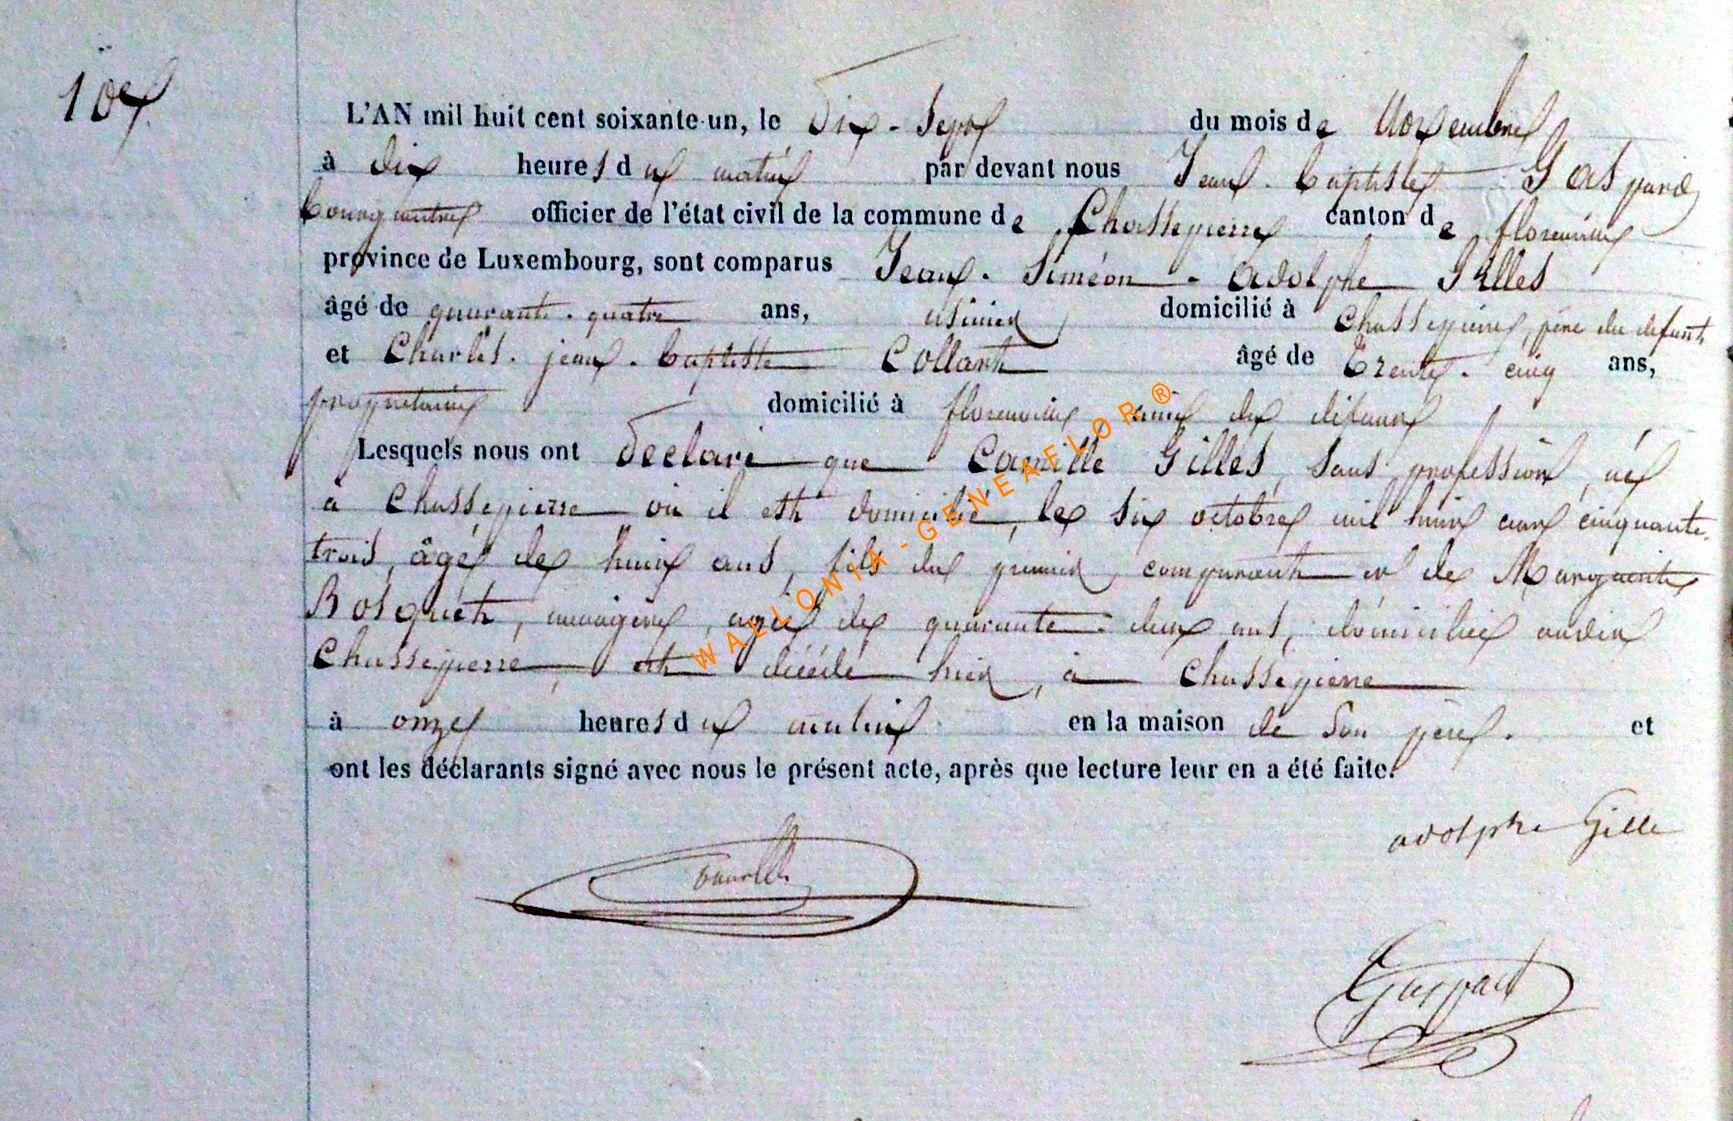 10e
L'AN mil huit cent soixante-un, le Dix-Sept du mois de Novembre
à dix heures du matin par devant nous Jean-Baptiste Gaspard
bourgmestre officier de l'état civil de la commune de Chassepierre canton de florenville
province de Luxembourg, sont comparus Jean-Siméon-Adolphe Gilles
âgé de quarante-quatre ans, usinier domicilié à Chassepierre, père du défunt
et Charles-jean-baptiste Collart âgé de Trente-cinq ans,
propriétaire domicilié à florenville ami du défunt
Lesquels nous ont Déclaré que Camille Gilles, Sans profession, né
à Chassepierre où il est domicilié, le six octobre mil huit cent cinquante
trois, âgé de huit ans, fils du premier comparant et de Marguerite
Bosquet, ménagère, agée de quarante-deux ans, domiciliée audit
Chassepierre, est décédé hier, à Chassepierre
à onze heures du matin en la maison de Son père. et
ont les déclarants signé avec nous le présent acte, après que lecture leur en a été faite.
adolphe Gille
Gaspard
WALLONIA-GENEAFLOR®